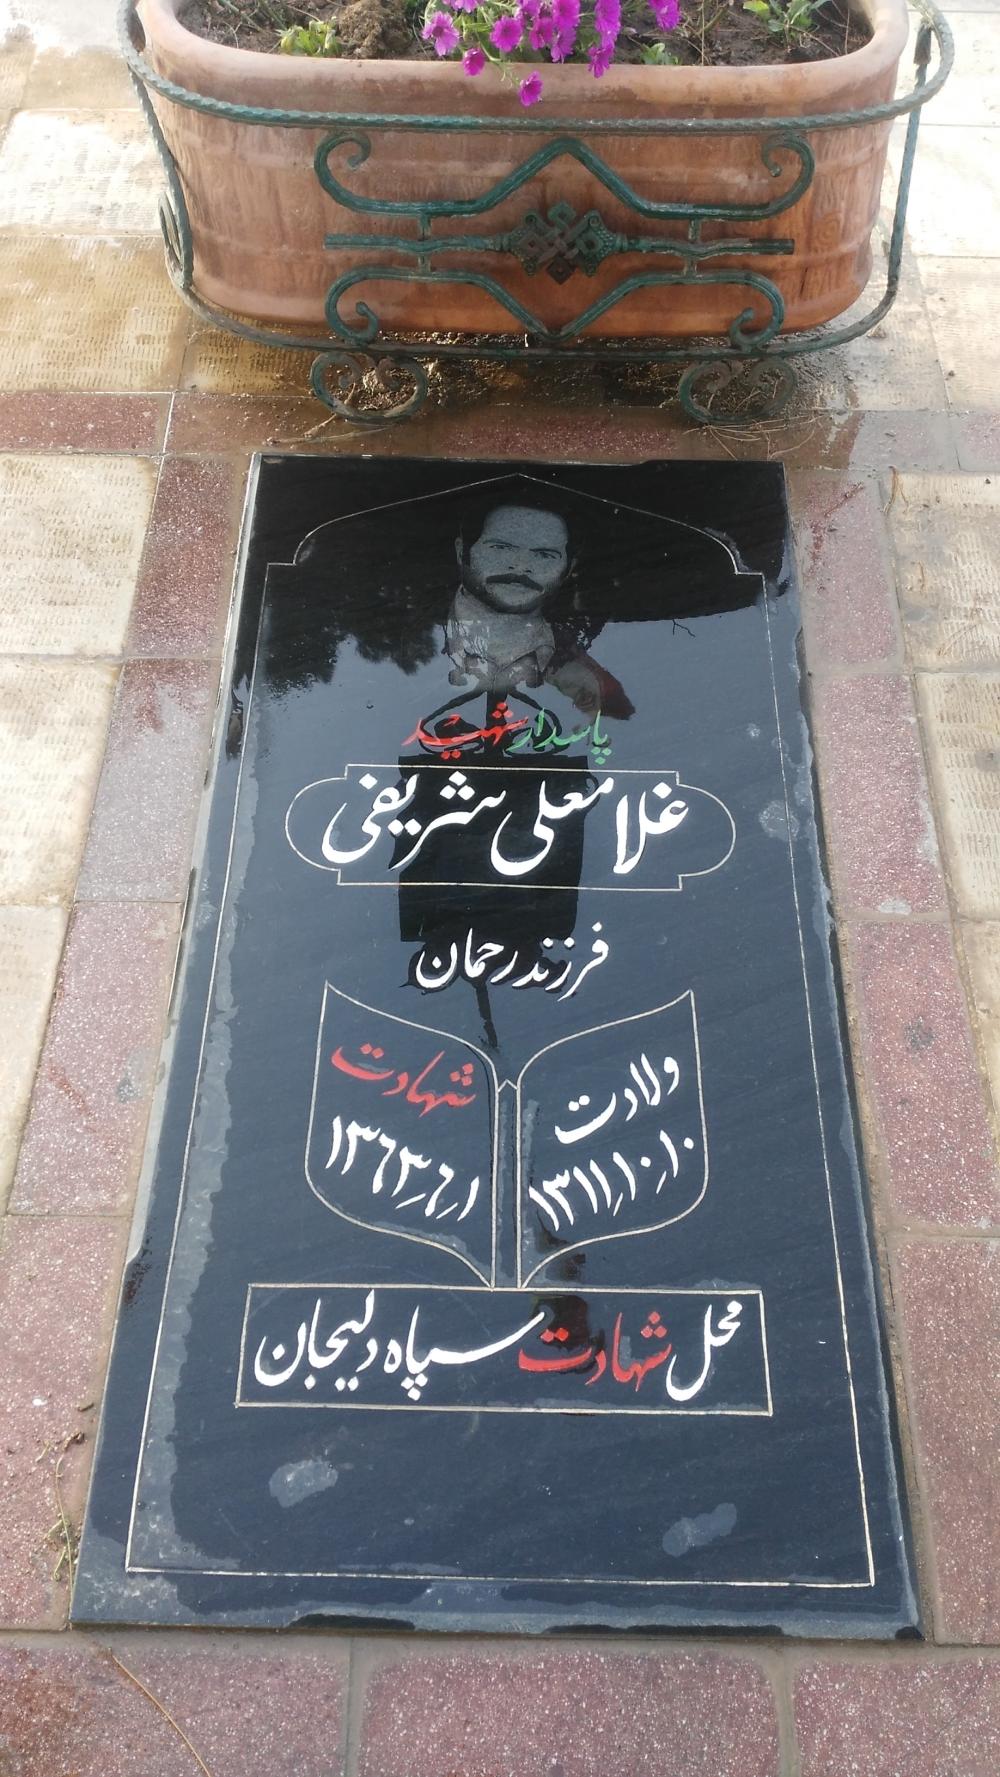 پاسدار شهید
غلامعلی شریفی
فرزند رحمان
ولادت
۱۳۱۱٫۱۰٫۱۰
شهادت
۱۳۶۳٫۶٫۱
محل شهادت سپاه دلیجان